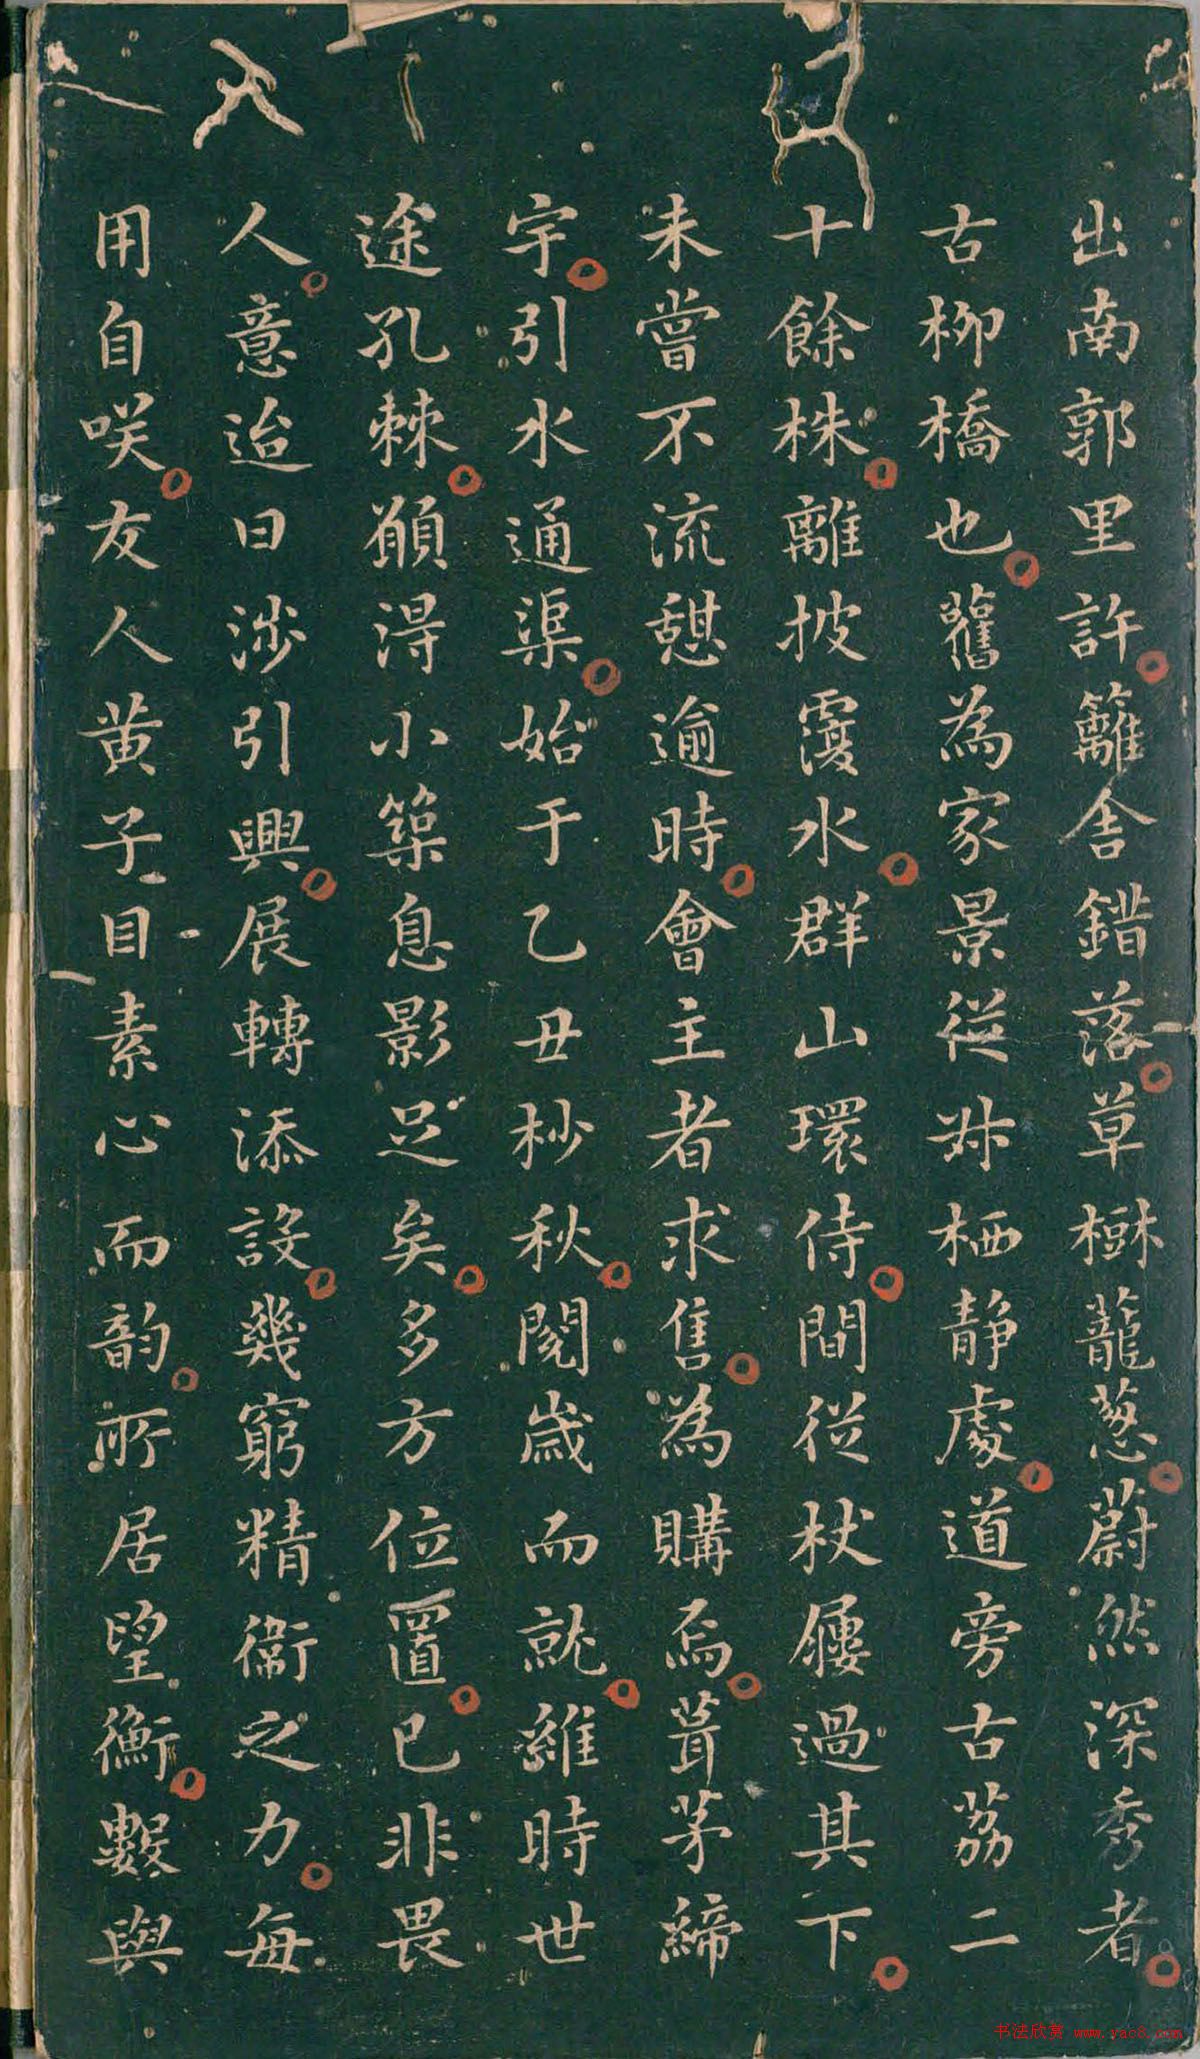 出南郭里許籬舍錯落草樹蘢蔥蔚然深秀者
古柳橋也舊為家景從叔栖靜處道旁古荔二
十餘株離披覆水群山環侍間從杖屨過其下
未嘗不流憩逾時會主者求售為購焉葺茅締
宇引水通渠始于乙丑杪秋閱歲而就維時世
途孔棘願得小築息影足矣多方位置已非畏
人意迨日涉引興展轉添設幾窮精衞之力每
用自咲友人黄子目素心而韵所居望衡數與
书法欣赏 www.yac8.com